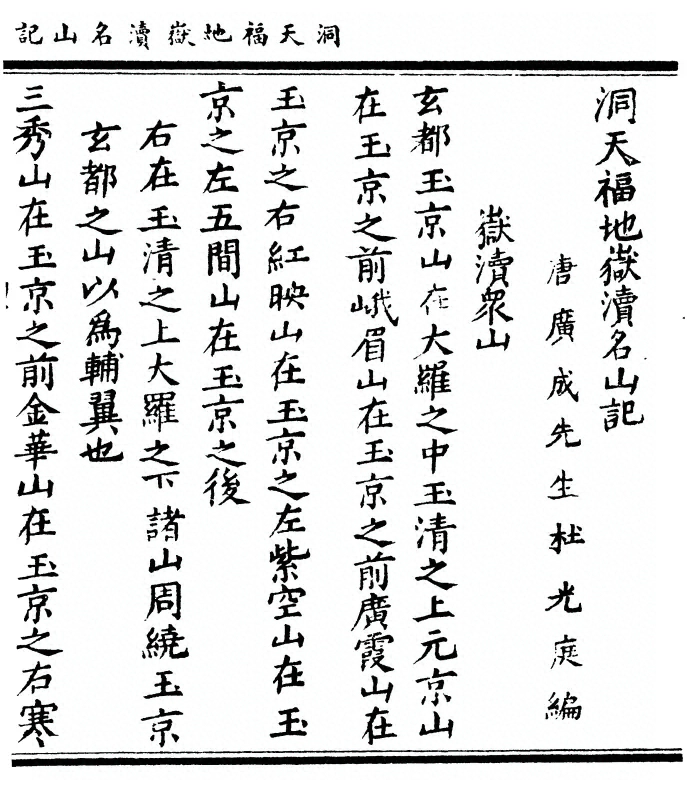 洞天福地嶽瀆名山記
洞天福地嶽瀆名山記
唐廣成先生杜光庭編
嶽瀆衆山
玄都玉京山在大羅之中玉清之上元京山
在玉京之前峨眉山在玉京之前廣霞山在
玉京之右紅映山在玉京之左紫空山在玉
京之左五間山在玉京之後
右在玉清之上大羅之下諸山周繞玉京
玄都之山以為輔翼也
三秀山在玉京之前金華山在玉京之右寒